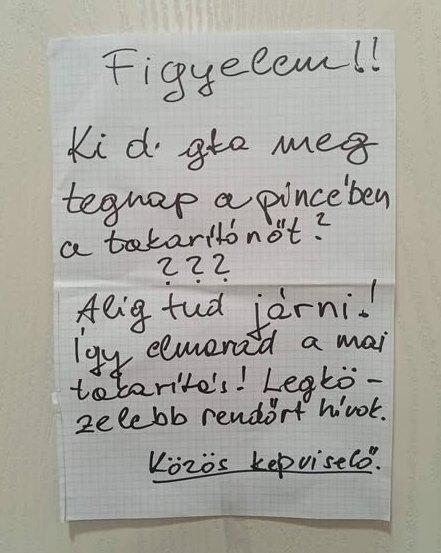 Figyelem!!
Ki d. gta meg
tegnap a pincében
a takarítónőt?
???
Alig tud járni!
Így elmarad a mai
takarítás! Legkö-
zelebb rendőrt hívok.
Közös képviselő.